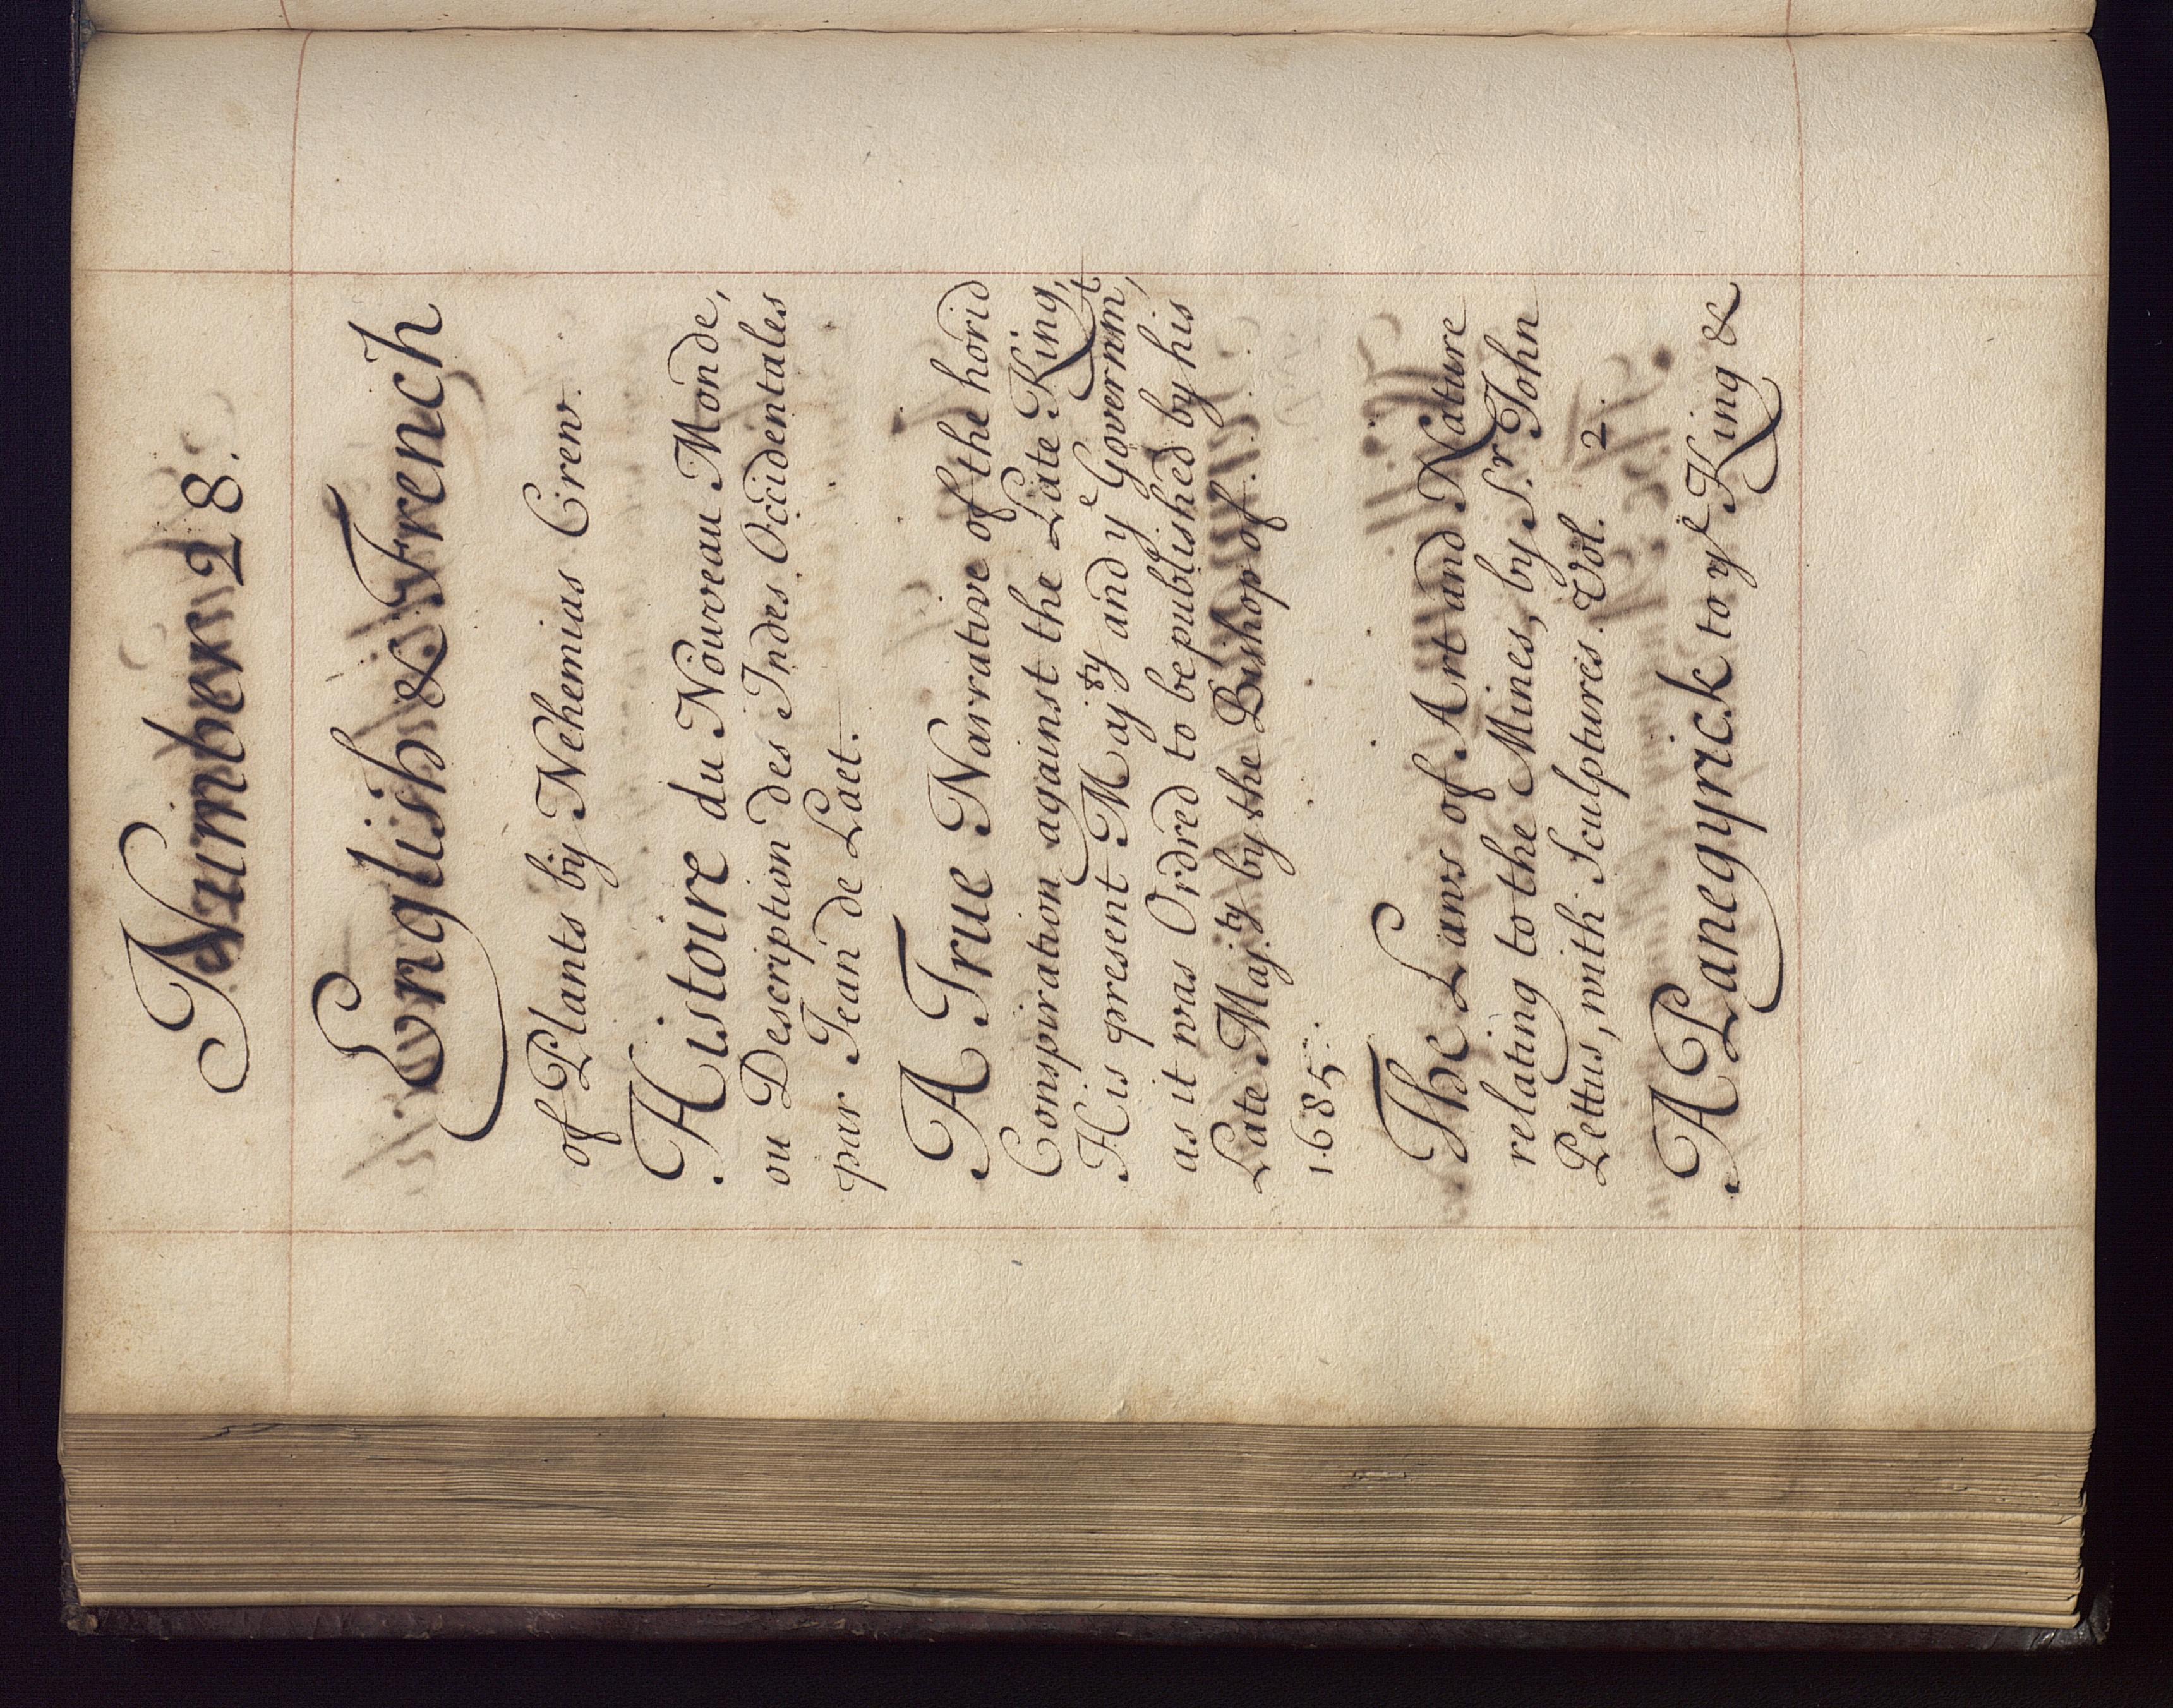 Number 28.
English & French
of Plants by Nehemias Crew.
Histoire du Nouveau Monde,
ou Description des Indes Occidentales
par Jean de Laet.
A True Narrative of the horid
Conspiration against the Late King,
His present Majty and ye Governmt,
as it was Ordred to be published by his
Late Majty by the Bishop of
1685.
The Laws of Art and Nature
relating to the Mines, by Sr. John
Pettus, with Sculptures. Vol. 2.
A Panegyrick to ye King &